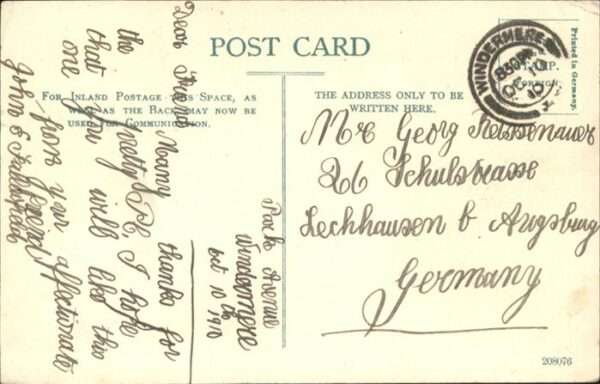 POST CARD
FOR INLAND POSTAGE THIS SPACE, AS
WELL AS THE BACK MAY NOW BE
USED FOR COMMUNICATION.
THE ADDRESS ONLY TO BE
WRITTEN HERE.
WINDERMERE
830PM
OC 10
10
STAMP.
FOREIGN
Printed in Germany.
Park Avenue
Windermere
Oct 10th 1910
Dear Friend
Many thanks for
the pretty P.C. I hope
that you will like this
one
from your affectionate
friend
John E
Mr Georg
26 Schulstrasse
Lechhausen b Augsburg
Germany
208076